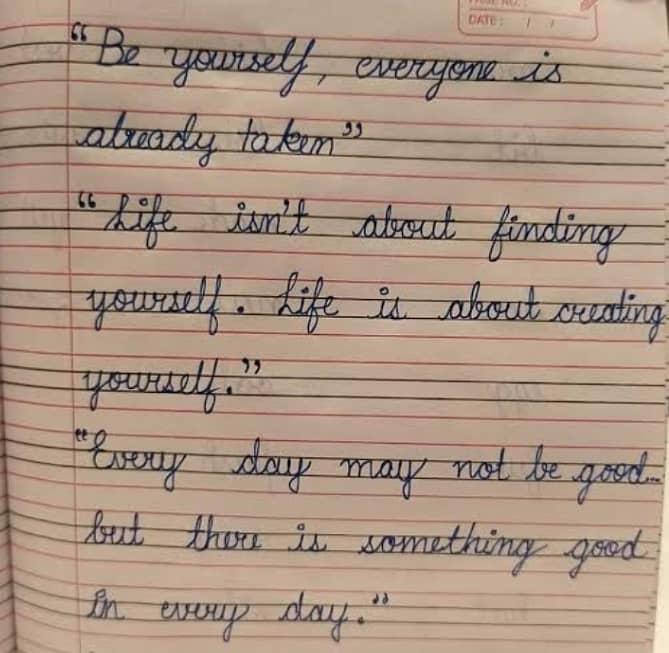 PAGE NO.:
DATE: / /
“Be yourself, everyone is
already taken”
“Life isn't about finding
yourself. Life is about creating
yourself.”
“Every day may not be good...
but there is something good
in every day.”